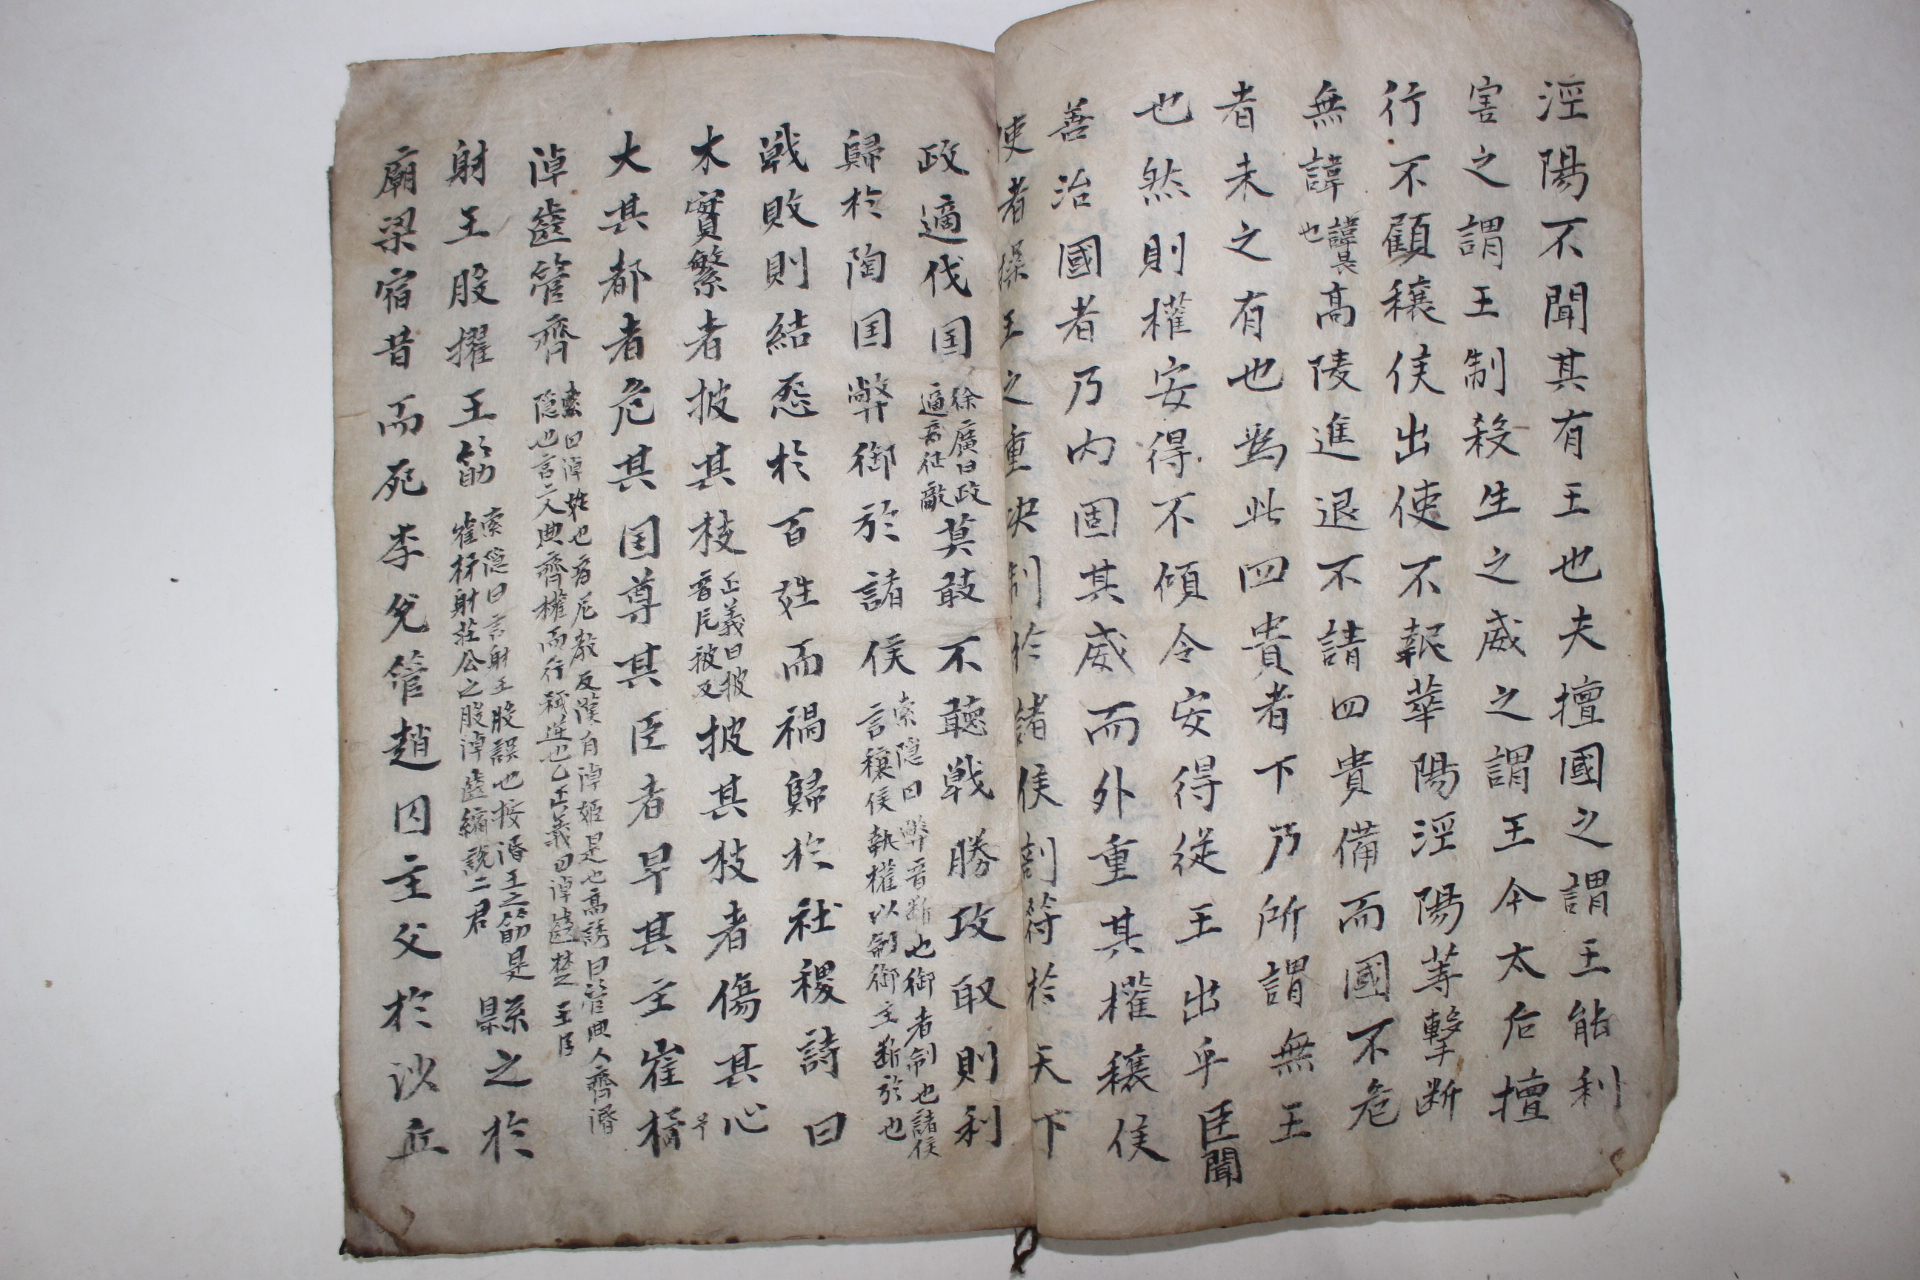 涇陽不聞其有王也夫擅國之謂王能利
害之謂王制殺生之威之謂王今太后擅
行不顧穰侯出使不報華陽涇陽等擊断
無諱諱畏也高陵進退不請四貴備而國不危
者未之有也為此四貴者下乃所謂無王
也然則權安得不傾令安得從王出乎臣聞
善治國者乃内固其威而外重其權穰侯
使者操王之重决制於諸侯剖符於天下
政適伐国徐廣曰政適音征敵莫敢不聴戦勝攻取則利
歸於陶国弊御於諸侯索隠曰弊音断也御者制也諸侯言穰侯執權以制御主断於也
戦敗則結怨於百姓而禍歸於社稷詩曰
木實繁者披其枝正義曰披音片被反披其枝者傷其心
大其都者危其国尊其臣者卑其主崔杼
淖齒管齊索曰淖姓也音尼教反漢有淖姬是也高誘曰管典人齊湣隠也言二人典齊權而行弑逆也正義曰淖齒楚王臣
射王股擢王筋索隠曰言射王股誤也按湣王之筋是崔杼射莊公之股淖齒縮説二君縣之於
廟梁宿昔而死李兌管趙囚主父於沙丘